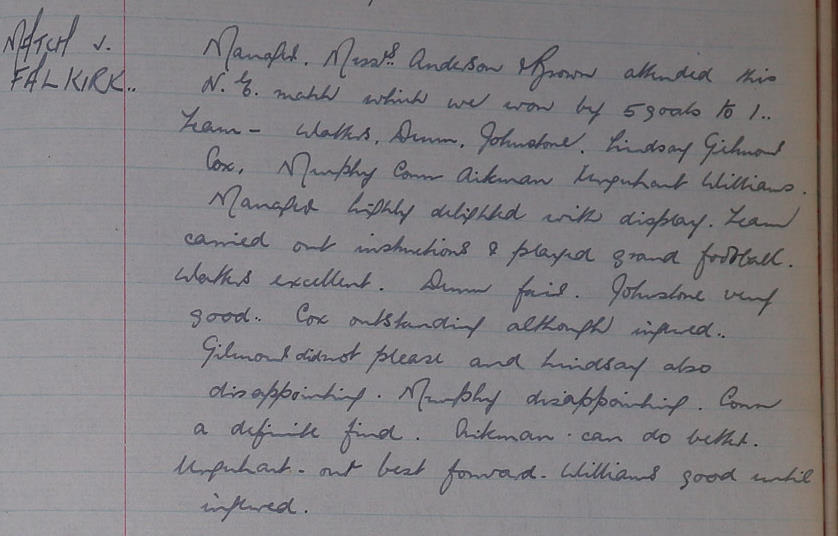 MATCH v.
FALKIRK..
Manager. Messrs Anderson & Brown attended this
N.E. match which we won by 5 goals to 1..
Team - Watters, Dunn, Johnstone. Lindsay Gilmour
Cox. Murphy Conn Aikman Urquhart Williams.
Manager highly delighted with display. Team
carried out instructions & played grand football.
Watters excellent. Dunn fair. Johnstone very
good.. Cox outstanding although injured..
Gilmour did not please and Lindsay also
disappointing. Murphy disappointing. Conn
a definite find. Aikman can do better.
Urquhart - our best forward - Williams good until
injured.